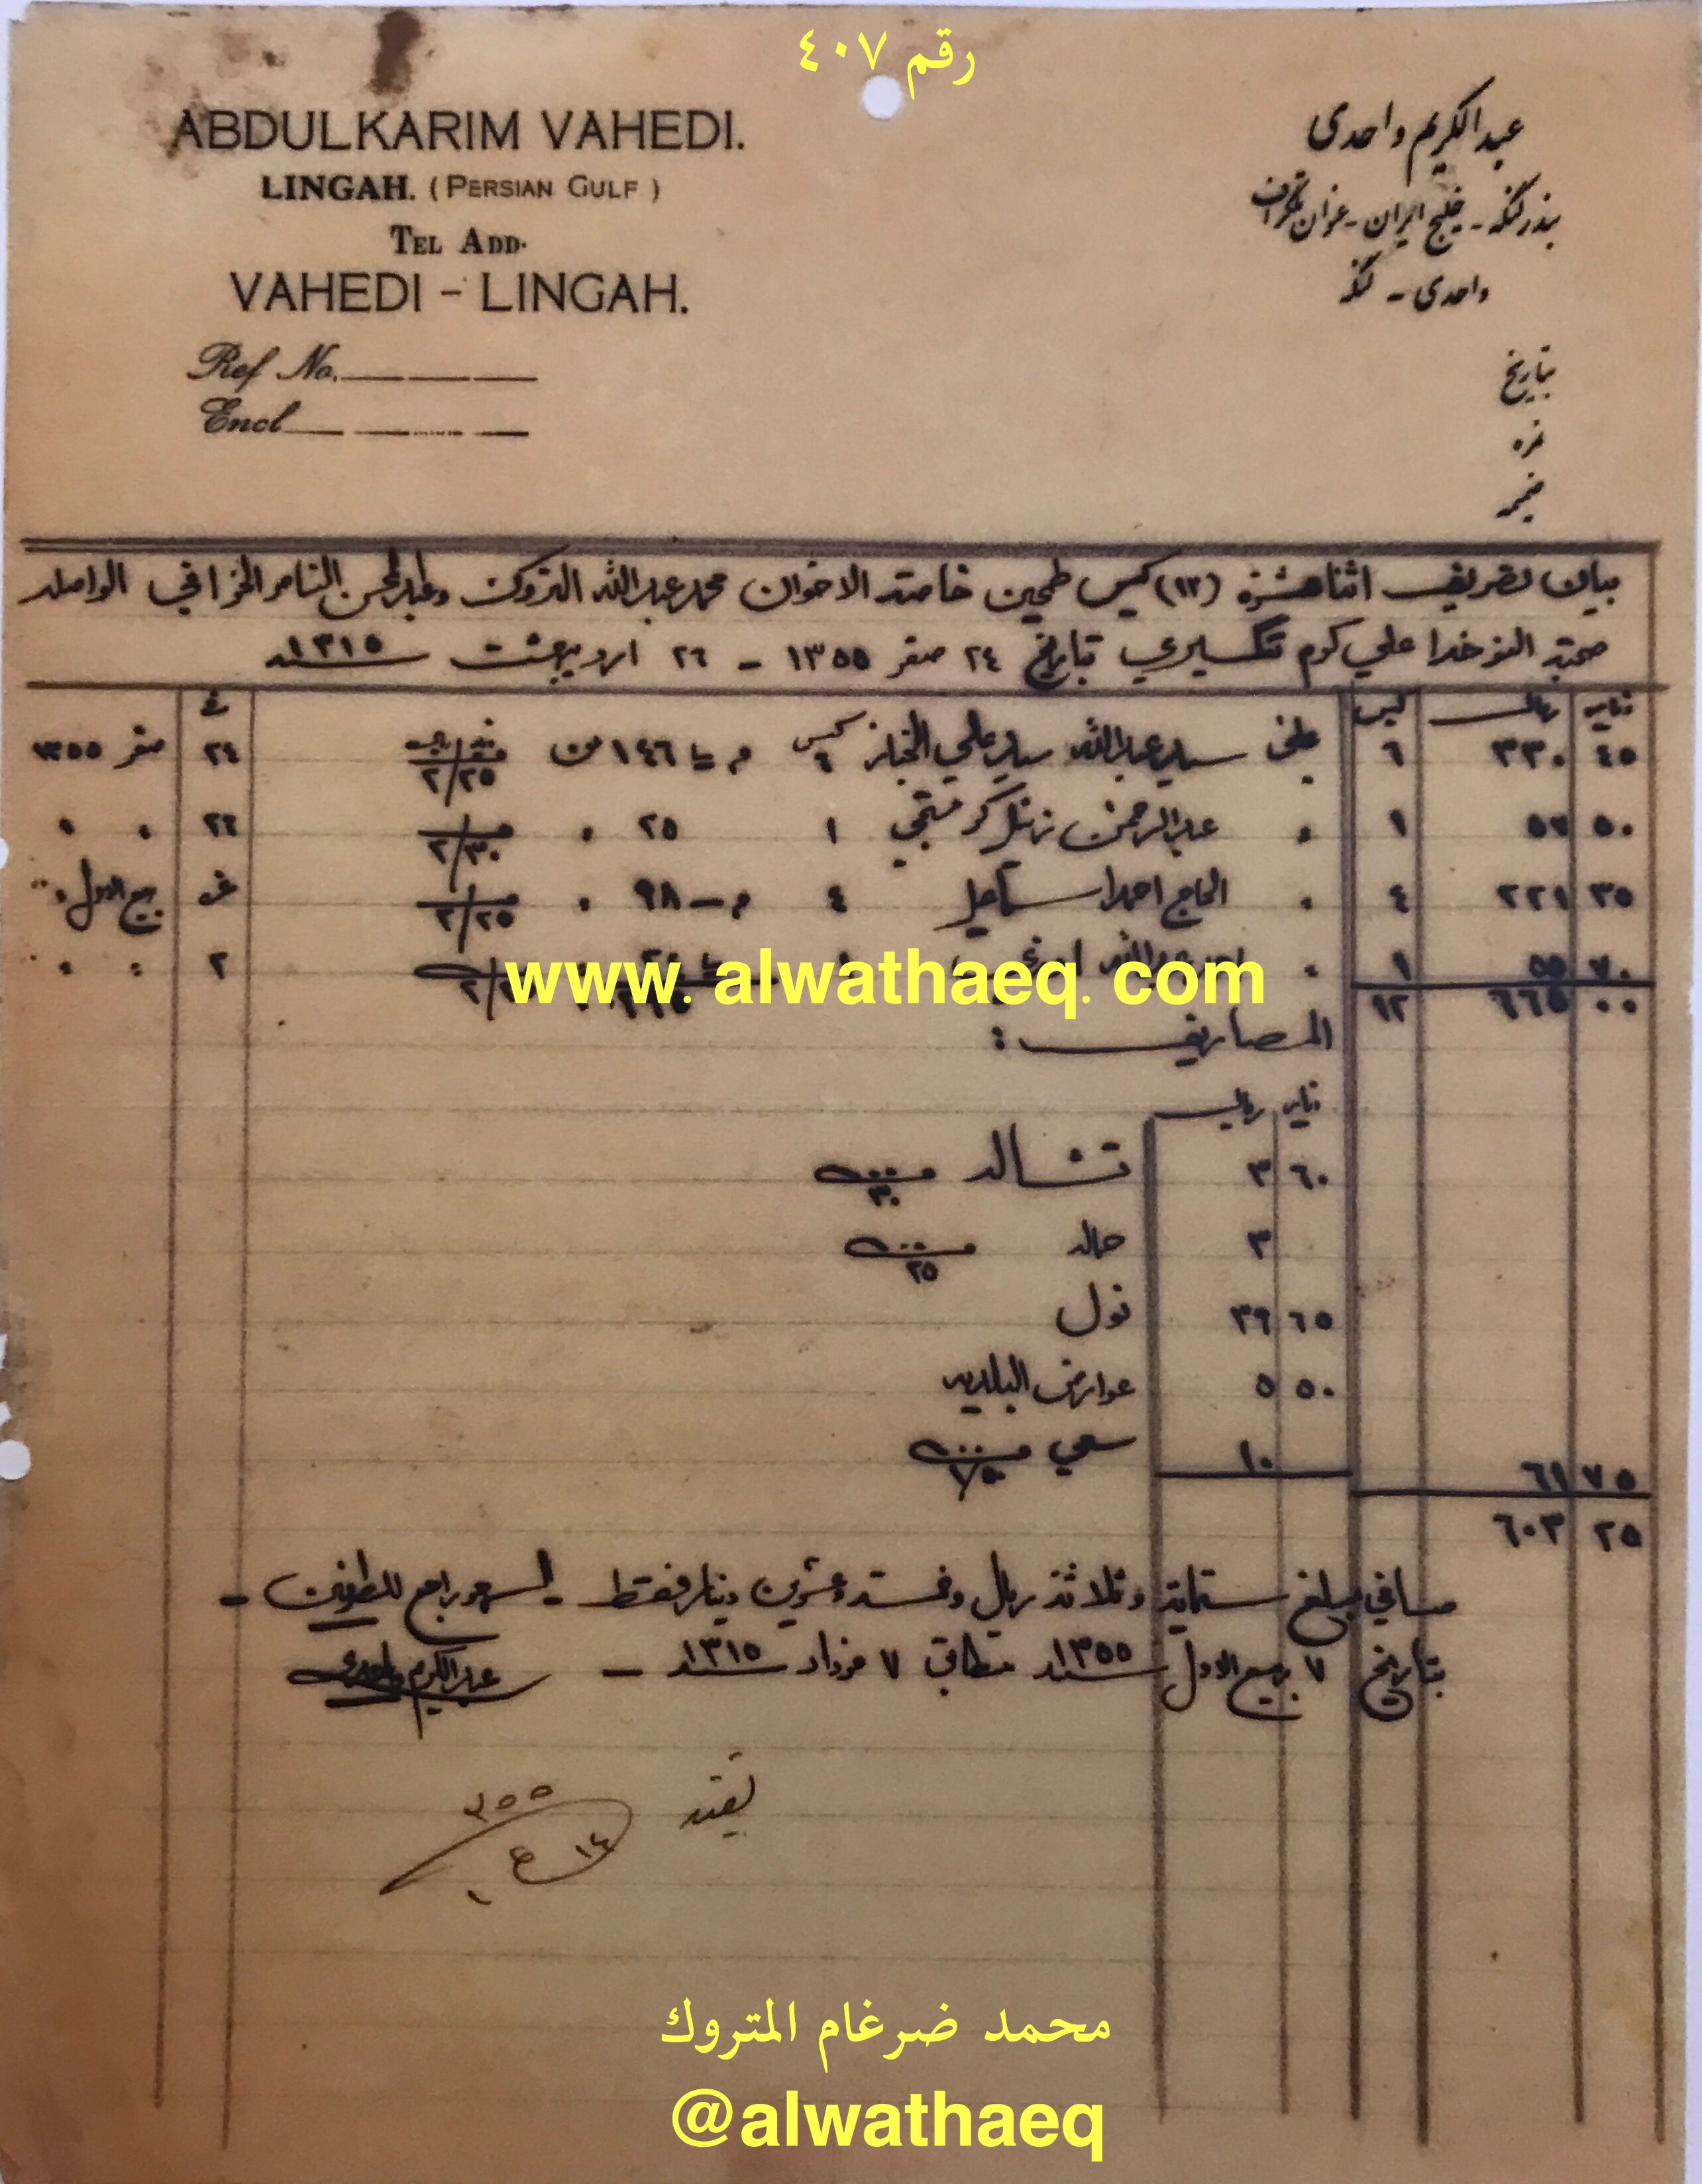 رقم ٤٠٧
ABDULKARIM VAHEDI.
LINGAH. (PERSIAN GULF)
TEL ADD.
VAHEDI - LINGAH.
Ref No.
Encl
عبدالکریم واحدی
بندرلنگه - خلیج ایران - عنوان تلگراف
واحدی - لنگه
بتاریخ
نمره
ضمیمه
بيان تصريف اثناعشرة (١٢) كيس طحين خاصة الاخوان محمد عبدالله المتروك وعبدالمحسن الناصر الخرافي الواصله
صحبة النوخدا علي كرم تنگسيري بتاريخ ٢٤ صفر ١٣٥٥ - ٢٦ ارديبهشت سنه ١٣١٥
دينار ريال كيس
٤٥ ٣٣٠ ٦ سيد عبدالله سيد علي الخباز كيس ٦ ١٤٦ من ٢/٢٥ ٢٤ صفر ١٣٥٥
٥٠ ٥٧ ١ عبدالرحمن ١ ٢٥ ٢/٣٠ ٢٦
٣٥ ٢٢١ ٤ الحاج احمد اسماعيل ٤ ٩٨ ٢/٢٥ ربيع الاول
٧٠ ٥٥ ١ ٢
٠٠ ٦٦٥ ١٢
www. alwathaeq. com
المصاريف :
دينار ريال
٦٠ ٣ تشاله ٣٠
٣ حماله ٢٥
٦٥ ٣٩ نول
٥٠ ٥ عوارض البلديه
١٠ سعي ١/٥٠
٧٥ ٦١
٢٥ ٦٠٣
صافي مبلغ ستماية وثلاثة ريال وخمسة وعشرين دينار فقط - السهو راجع للطرفين -
بتاريخ ٧ ربيع الاول سنه ١٣٥٥ مطابق ٧ خرداد سنه ١٣١٥ - عبدالكريم واحدي
١٤ ع ١ ٣٥٥
محمد ضرغام المتروك
@alwathaeq